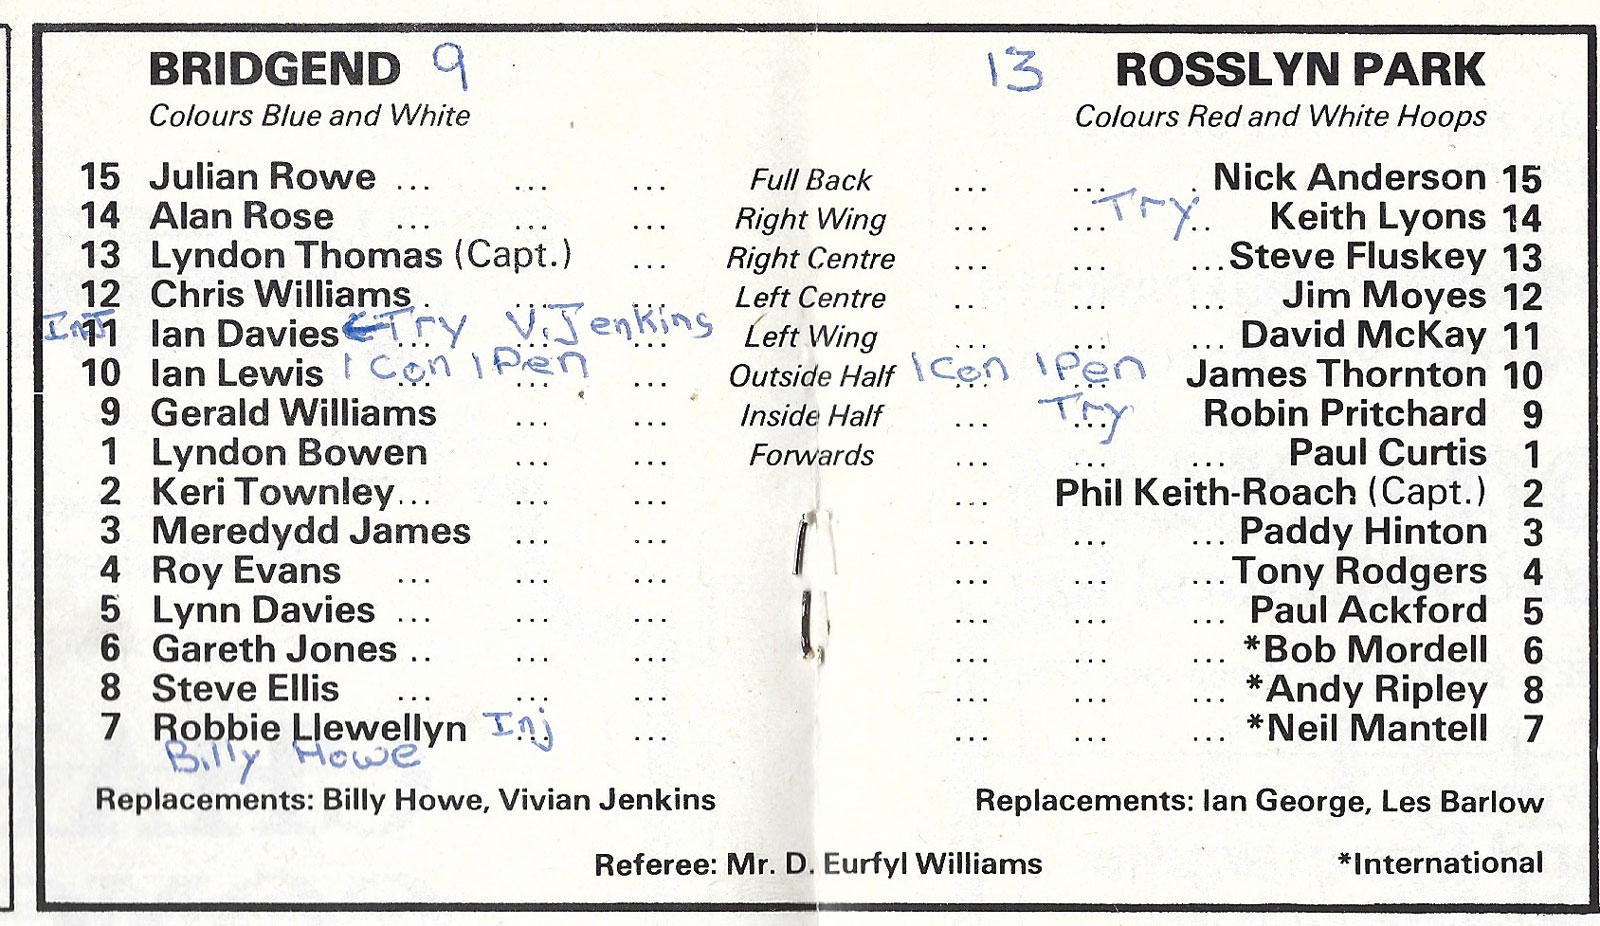 BRIDGEND 9 13 ROSSLYN PARK
Colours Blue and White Colours Red and White Hoops
15 Julian Rowe ... ... ... Full Back ... ... . Nick Anderson 15
14 Alan Rose ... ... ... Right Wing ... ... Try .. Keith Lyons 14
13 Lyndon Thomas (Capt.) ... Right Centre ... ... ... Steve Fluskey 13
12 Chris Williams . ... ... Left Centre ... ... ... Jim Moyes 12
Inj 11 Ian Davies ← Try V. Jenkins ... Left Wing ... ... ... David McKay 11
10 Ian Lewis 1 Con 1 Pen ... Outside Half 1 Con 1 Pen James Thornton 10
9 Gerald Williams ... ... Inside Half ... Try Robin Pritchard 9
1 Lyndon Bowen ... ... Forwards ... ... ... Paul Curtis 1
2 Keri Townley... ... ... ... Phil Keith-Roach (Capt.) 2
3 Meredydd James ... ... ... ... ... Paddy Hinton 3
4 Roy Evans ... ... ... ... ... ... Tony Rodgers 4
5 Lynn Davies ... ... ... ... ... ... Paul Ackford 5
6 Gareth Jones .. ... ... ... ... ... *Bob Mordell 6
8 Steve Ellis ... ... ... ... ... ... *Andy Ripley 8
7 Robbie Llewellyn Inj ... ... ... ... *Neil Mantell 7
Billy Howe
Replacements: Billy Howe, Vivian Jenkins Replacements: Ian George, Les Barlow
Referee: Mr. D. Eurfyl Williams *International